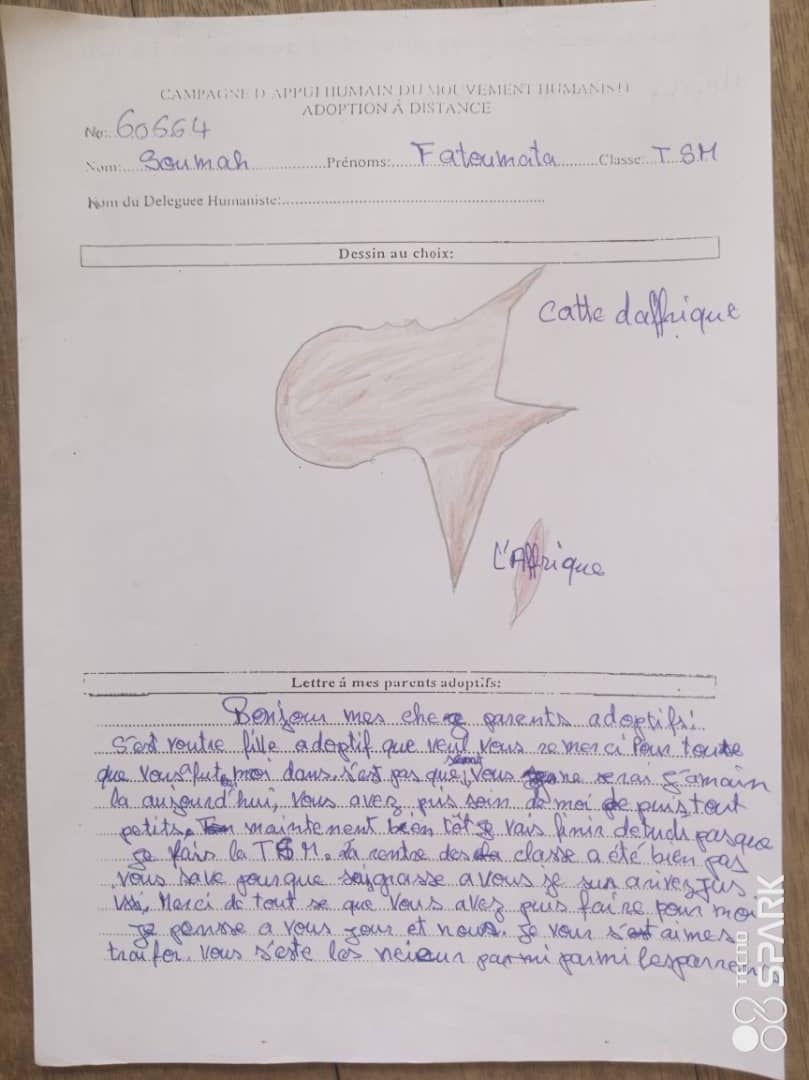 CAMPAGNE D'APPUI HUMAIN DU MOUVEMENT HUMANISTE
ADOPTION À DISTANCE
No: 60664
Nom: Soumah Prénoms: Fatoumata Classe: T SM
Nom du Deleguee Humaniste:
Dessin au choix:
Catte daffrique
L'Affrique
Lettre á mes parents adoptifs:
Bonjour mes chers parents adoptifs!
S'est voutre fille adoptif que veul vous remerci Pour toute
que vous moi dans s'est pas que vous ne seras j'amain
la aujourd'hui, vous avez puis soin de moi de puis tout
petits. maintenent bien tôt je vais finir detuds pasque
je fais la TSM. la rentre des classe a été bien pas
vous save pourque grasse a vous je suis arivez jus
Merci de tout se que vous avez puis faire pour moi
Je pensse a vous jour et nous. Je vous aimes
trai for. vous s'este les parmi parmi les parrens
TECNO
SPARK